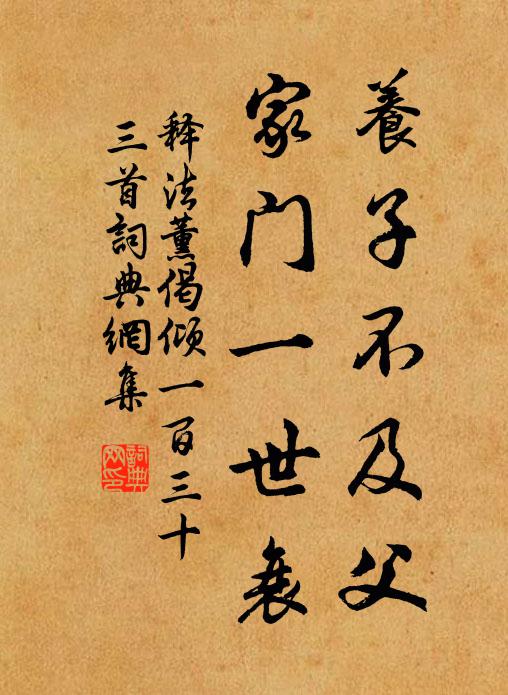 養子不及父
家門一世衰
释法薰偈傾一百三十
三首詞典網集
詞典
网印